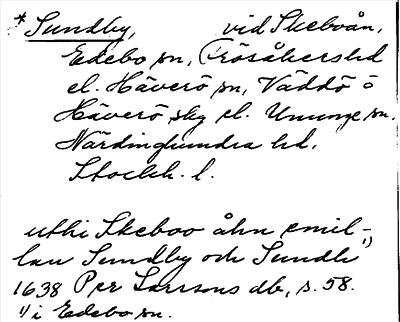 * Sundby, vid Skeboån,
Edebo sn, Frösåkers hd
el. Häverö sn, Väddö o
Häverö skg el. Ununge sn.
Närdinghundra hd.
Stockh. l.
uthi Skeboo åhn emil-
lan Sundby och Sundh 1)
1638 Per Larssons db, s. 58.
1) i Edebo sn.